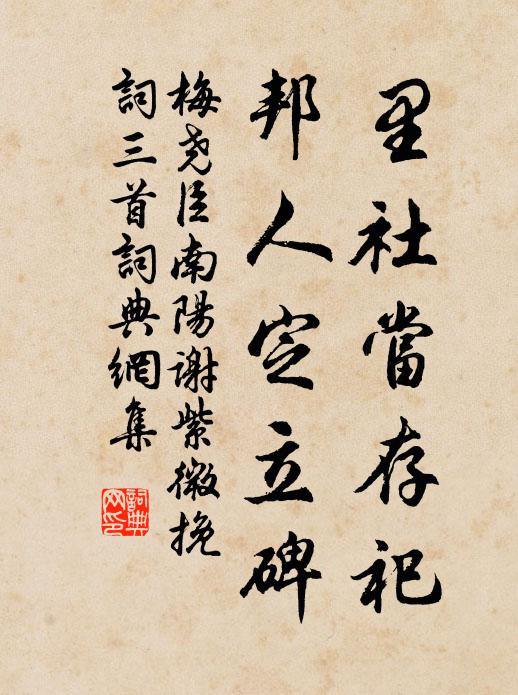 里社當存祀
邦人定立碑
梅堯臣南陽謝紫微挽
詞三首詞典網集
詞典网印